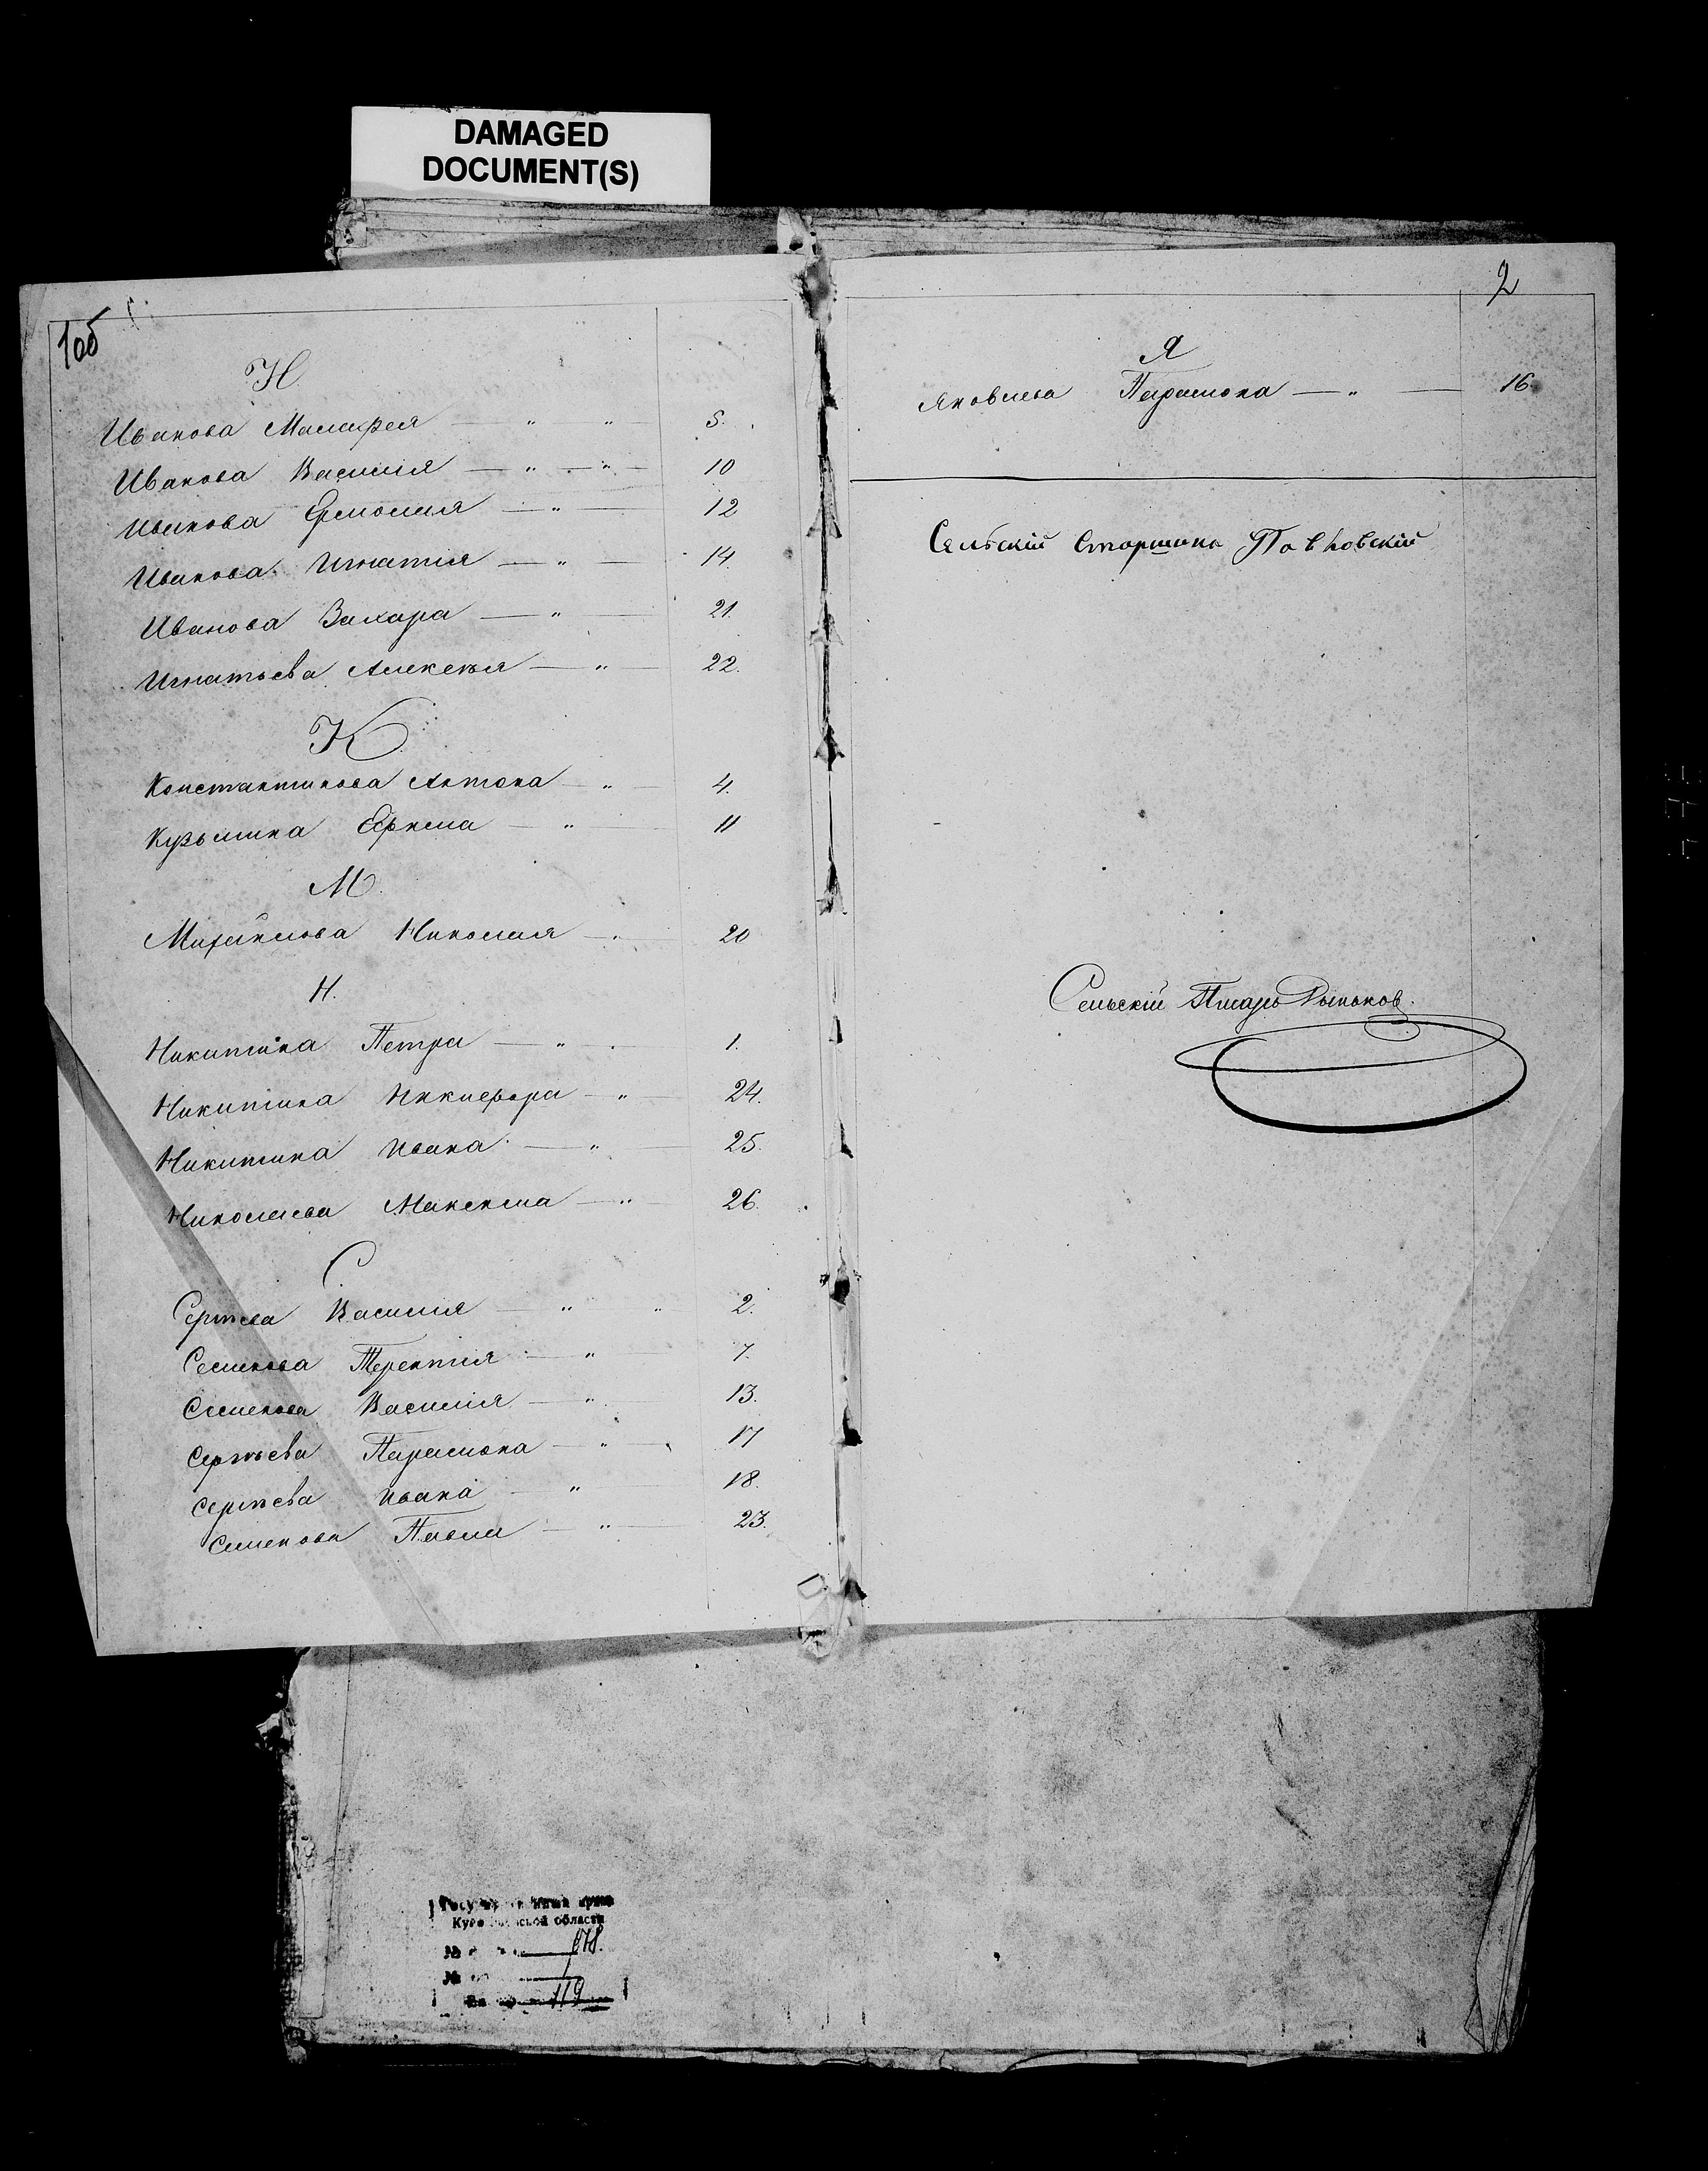 DAMAGED
DOCUMENT(S)
1об
И
Иванова Малафея — " " — 5.
Иванова Василія — " — " — 10
Иванова Ермолая — " — 12
Иванова Игнатія — " — 14.
Иванова Захара — " — 21.
Игнатьева Алексѣя — " — 22.
К
Константинова Антона — " — 4.
Кузьмина Ефима — " — 11
М.
Михайлова Николая — " — 20
Н.
Никитина Петра — " — 1.
Никитина Никифора — " — 24.
Никитина Ивана — " — 25.
Николаева Максима — " — 26.
С
Сергѣева Василія — " " 2.
Семенова Терентія — " — 7.
Семенова Василія — " 13.
Сергѣева Парамона — " — 17
Сергѣева Ивана — " — 18.
Семенова Павла — " — 23.
2
Я
Яковлева Парамона — " — 16
Сельскій Старшина
Сельскій Писарь
области
178.
119